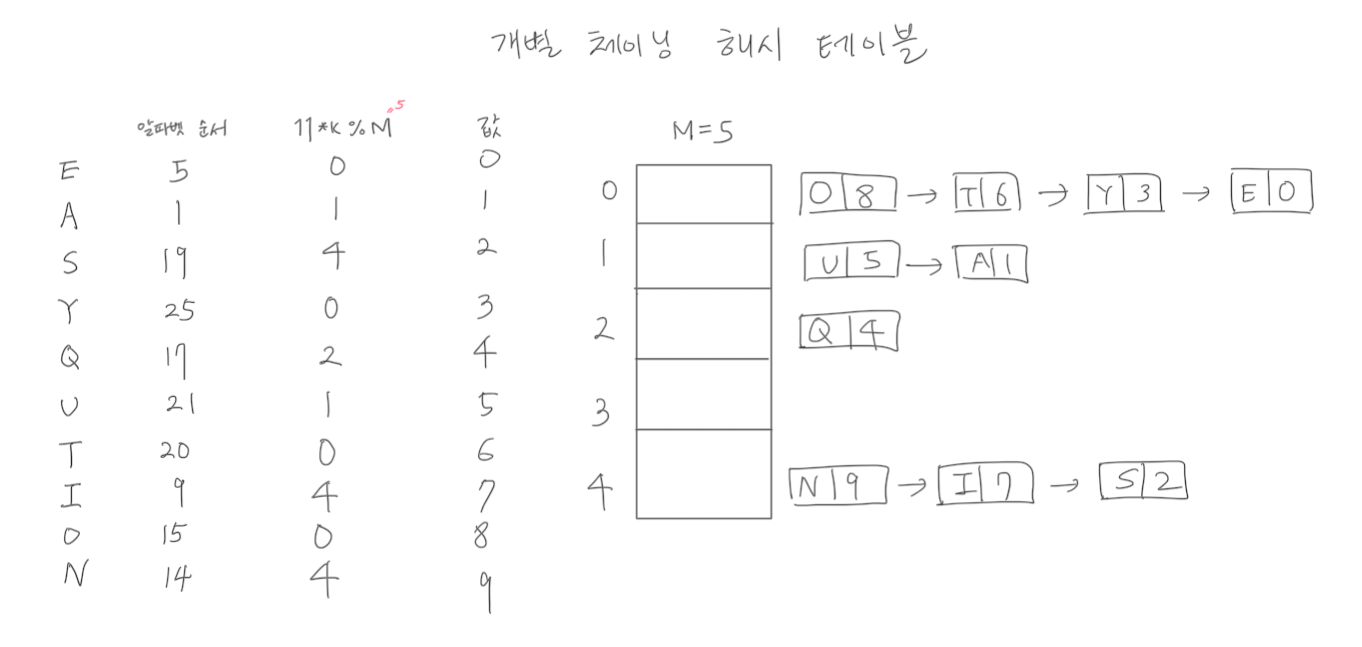 개별 체이닝 해시 테이블
알파벳 순서 11*K % M =5 값 M=5
E 5 0 0
A 1 1 1
S 19 4 2
Y 25 0 3
Q 17 2 4
U 21 1 5
T 20 0 6
I 9 4 7
O 15 0 8
N 14 4 9
0 O 8 → T 6 → Y 3 → E 0
1 U 5 → A 1
2 Q 4
3
4 N 9 → I 7 → S 2